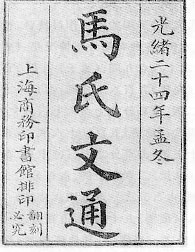 光緒二十四年孟冬
馬氏文通
上海商務印書館排印
翻刻必究